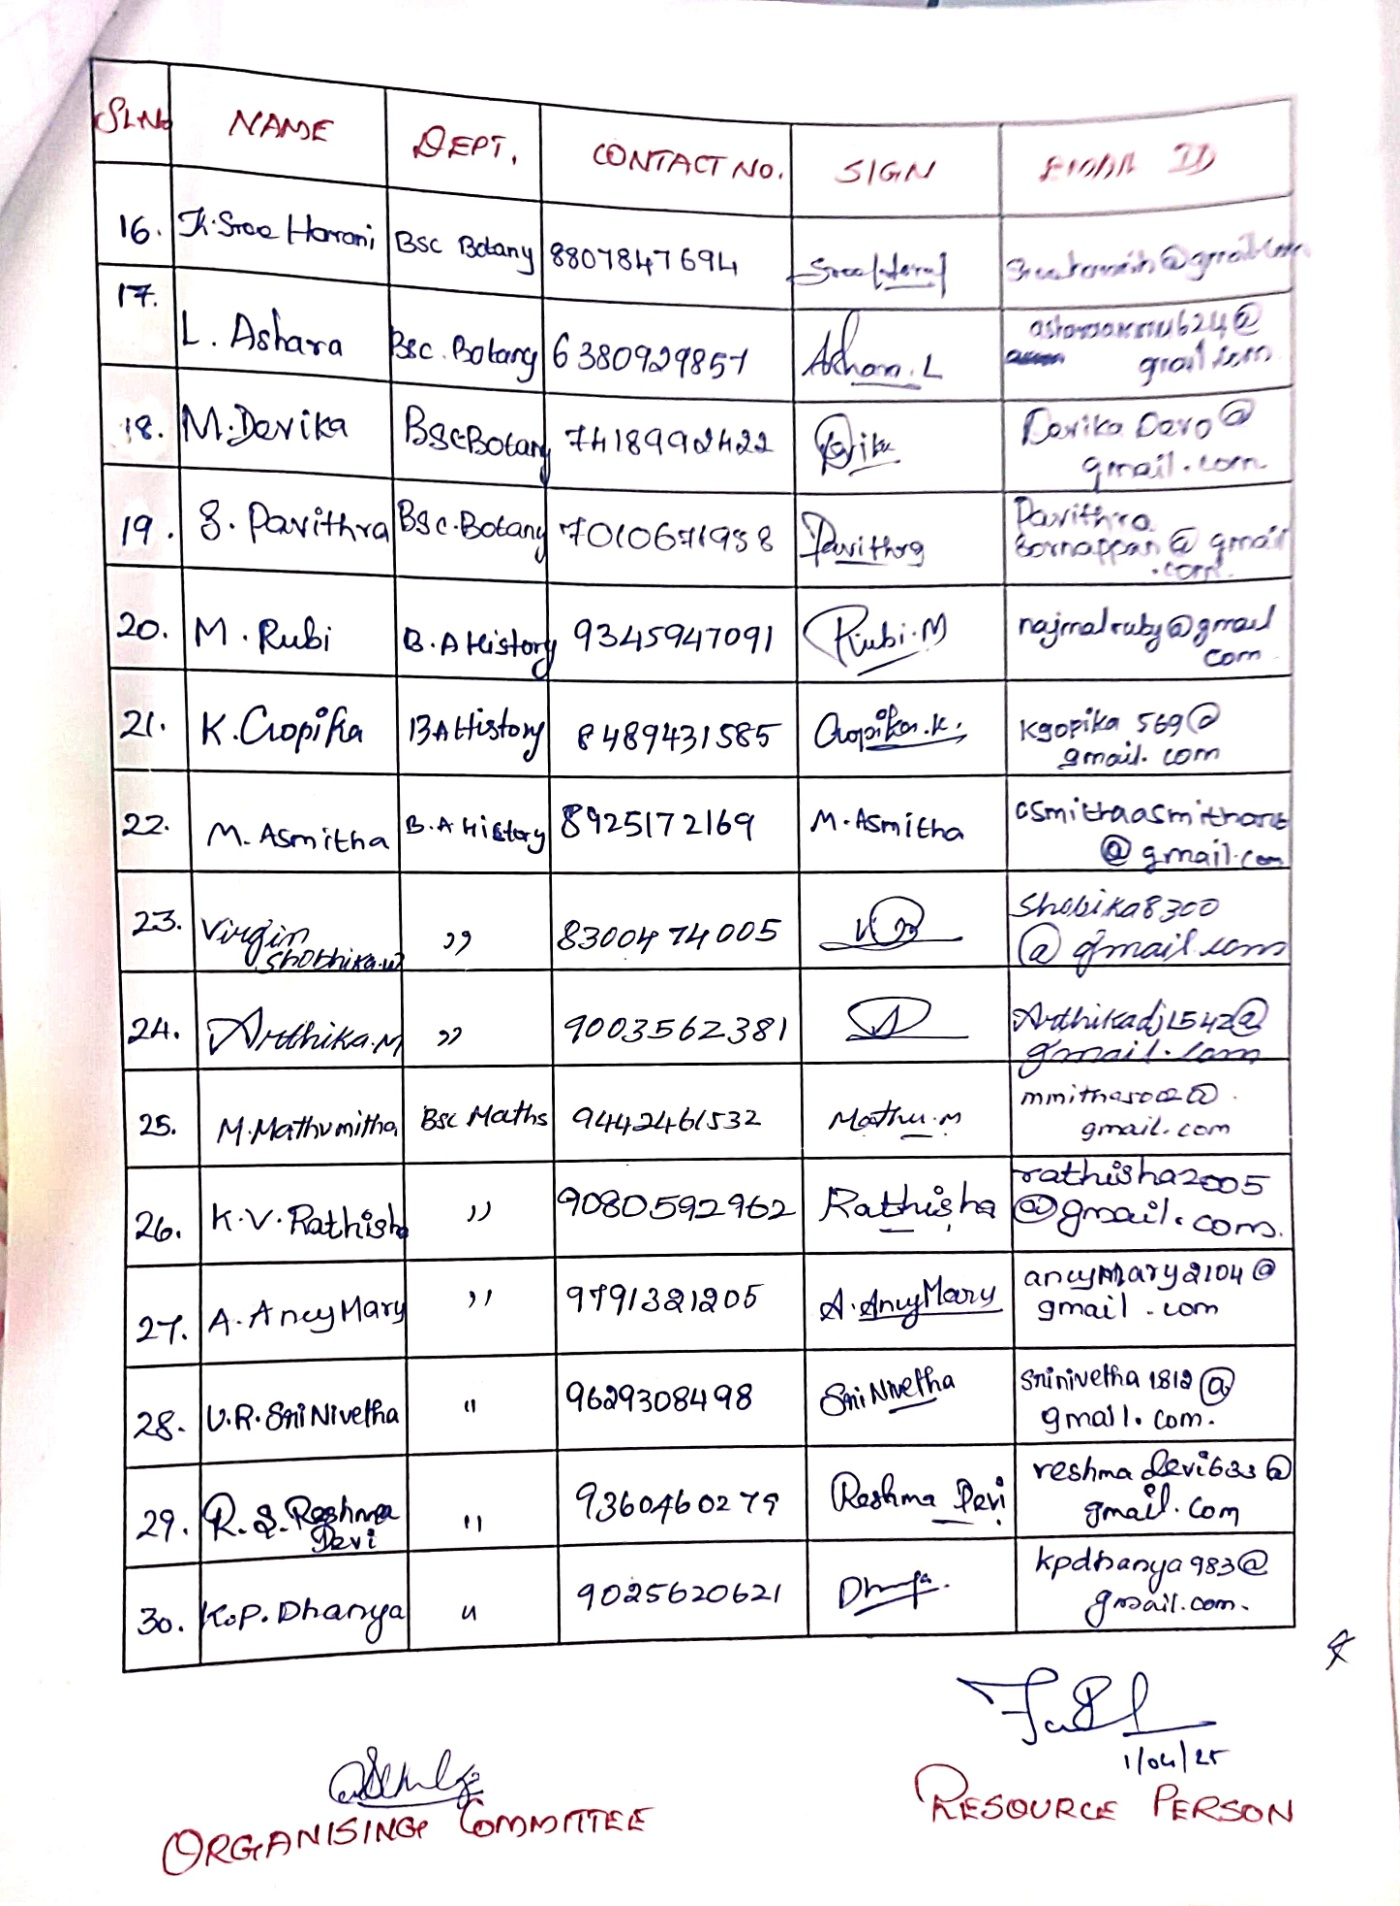 SL.No NAME DEPT. CONTACT NO. SIGN EMAIL ID
16. K. Sree Harani Bsc Botany 8807847694
17. L. Ashara Bsc. Botany 6380929857 Ashara. L
gmail.com
18. M. Devika Bsc Botany 7418992422 Devika Devo@
gmail.com
19. S. Pavithra Bsc. Botany 7010671938 Pavithra Pavithra
Bornappan@gmail
.com
20. M. Rubi B. A History 9345947091 Rubi. M najmalruby@gmail
com
21. K. Gopika B A History 8489431585 Gopika. K. kgopika 569@
gmail. com
22. M. Asmitha B. A History 8925172169 M. Asmitha
@gmail.com
23. Virgin ,, 8300474005 Shobika8300
@gmail.com
24. Arthika. M ,, 9003562381 Arthikadj1542@
gmail.com
25. M. Mathumitha Bsc Maths 9442461532 Mathu. m
gmail.com
26. K. V. Rathisha ,, 9080592962 Rathisha rathisha2005
@gmail.com.
27. A. Ancy Mary ,, 9791321205 A. Ancy Mary ancymary2104@
gmail.com
28. U. R. Sri Nivetha ,, 9629308498 Sri Nivetha Srinivetha1812@
gmail.com.
29. R. S. Reshma Devi ,, 9360460279 Reshma Devi reshmadevi633@
gmail.com
30. K. P. Dhanya ,, 9025620621 kpdhanya983@
gmail.com.
1/04/25
ORGANISING COMMITTEE RESOURCE PERSON